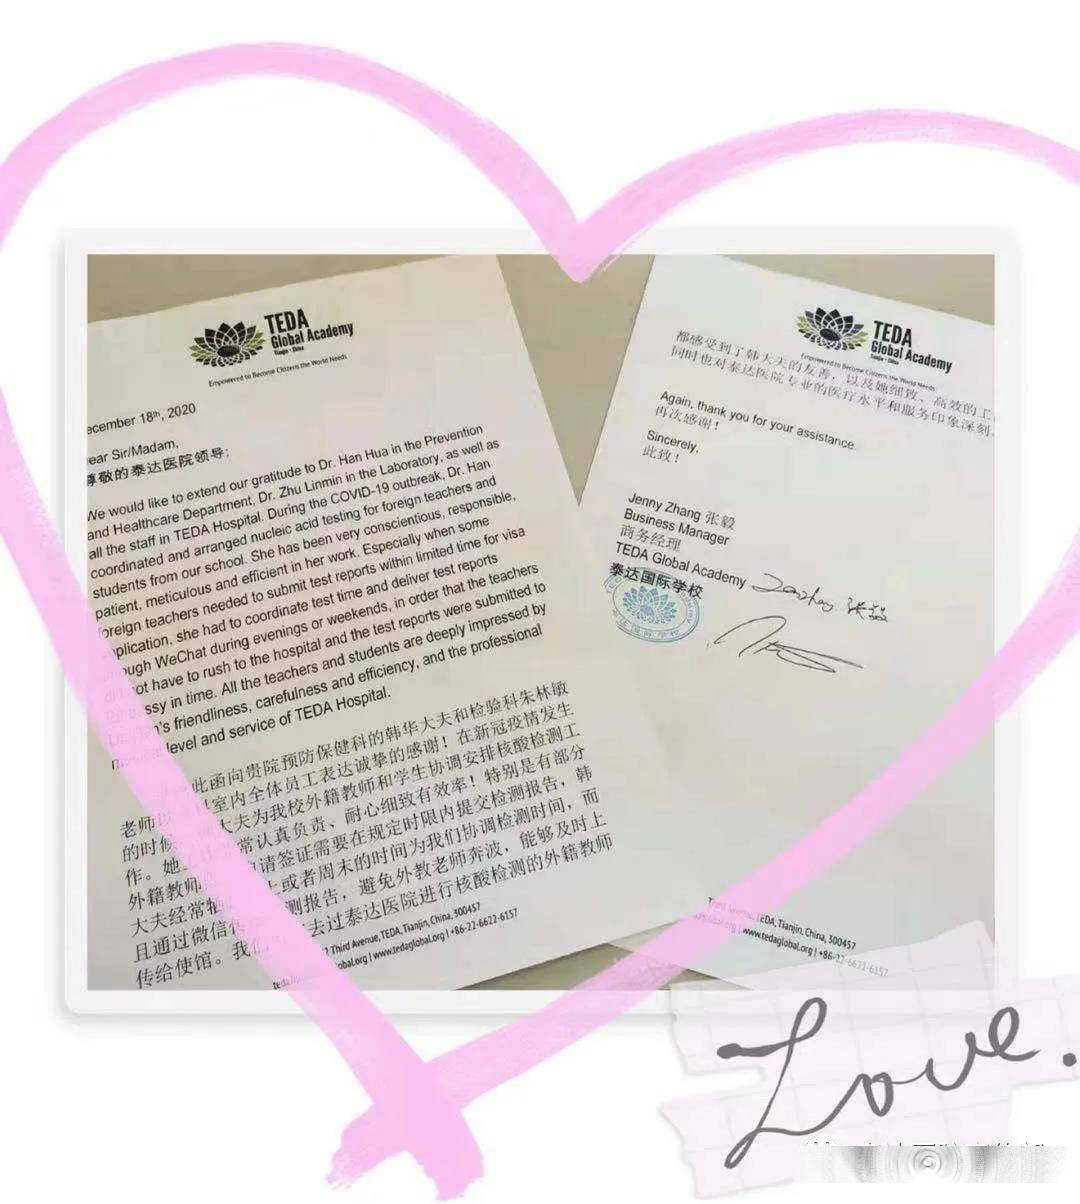 TEDA
Global Academy
Tianjin · China
Empowered to Become Citizens the World Needs
ecember 18th, 2020
ear Sir/Madam,
尊敬的泰达医院领导:
We would like to extend our gratitude to Dr. Han Hua in the Prevention
and Healthcare Department, Dr. Zhu Linmin in the Laboratory, as well as
all the staff in TEDA Hospital. During the COVID-19 outbreak, Dr. Han
coordinated and arranged nucleic acid testing for foreign teachers and
students from our school. She has been very conscientious, responsible,
patient, meticulous and efficient in her work. Especially when some
foreign teachers needed to submit test reports within limited time for visa
pplication, she had to coordinate test time and deliver test reports
ough WeChat during evenings or weekends, in order that the teachers
not have to rush to the hospital and the test reports were submitted to
ssy in time. All the teachers and students are deeply impressed by
's friendliness, carefulness and efficiency, and the professional
level and service of TEDA Hospital.
此函向贵院预防保健科的韩华大夫和检验科朱林敏
老师 室内全体员工表达诚挚的感谢!在新冠疫情发生
的时候 大夫为我校外籍教师和学生协调安排核酸检测工
作。她 常认真负责、耐心细致有效率!特别是有部分
外籍教师 请签证需要在规定时限内提交检测报告,韩
大夫经常牺 上或者周末的时间为我们协调检测时间,而
且通过微信 测报告,避免外教老师奔波,能够及时上
传给使馆。我们 去过泰达医院进行核酸检测的外籍教师
Third Avenue, TEDA, Tianjin, China, 300457
obal.org | www.tedaglobal.org | +86-22-6622-6157
TEDA
Global Academy
Tianjin · China
Empowered to Become Citizens the World Needs
都感受到了韩大夫的友善,以及她细致、高效的工
同时也对泰达医院专业的医疗水平和服务印象深刻.
Again, thank you for your assistance.
再次感谢!
Sincerely,
此致!
Jenny Zhang 张毅
Business Manager
商务经理
TEDA Global Academy
泰达国际学校
张毅
Third Avenue, TEDA, Tianjin, China, 300457
| www.tedaglobal.org | +86-22-6622-6157
Love.